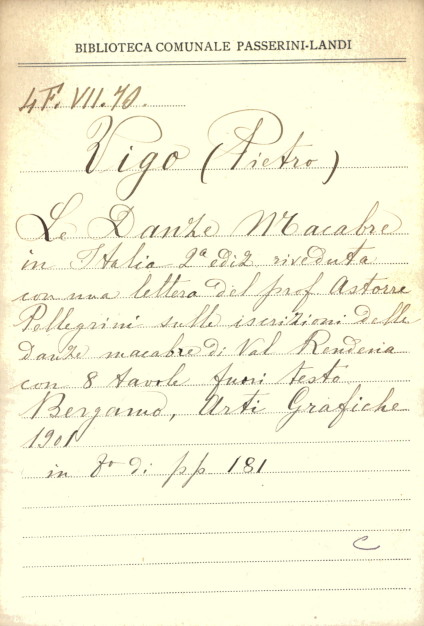 BIBLIOTECA COMUNALE PASSERINI-LANDI
4F. VII. 70.
Vigo (Pietro)
Le Danze Macabre
in Italia 2ª ediz riveduta
con una lettera del prof Astorre
Pellegrini sulle iscrizioni delle
danze macabre di Val Rendena
con 8 tavole fuori testo
Bergamo, Arti Grafiche
1901
in 8º di pp 181
C